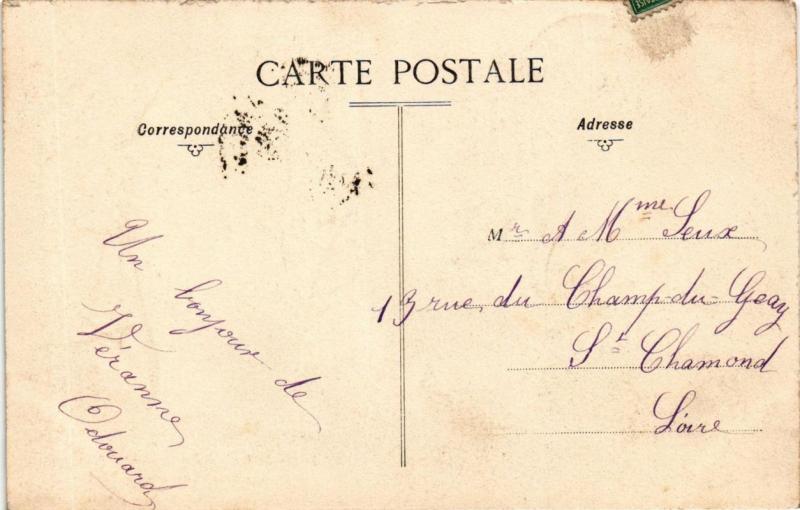 CARTE POSTALE
Correspondance
Adresse
Un bonjour de
Véranne
Odouard
Mr A Mme Seux
13 rue du Champ-du-Geay
St Chamond
Loire